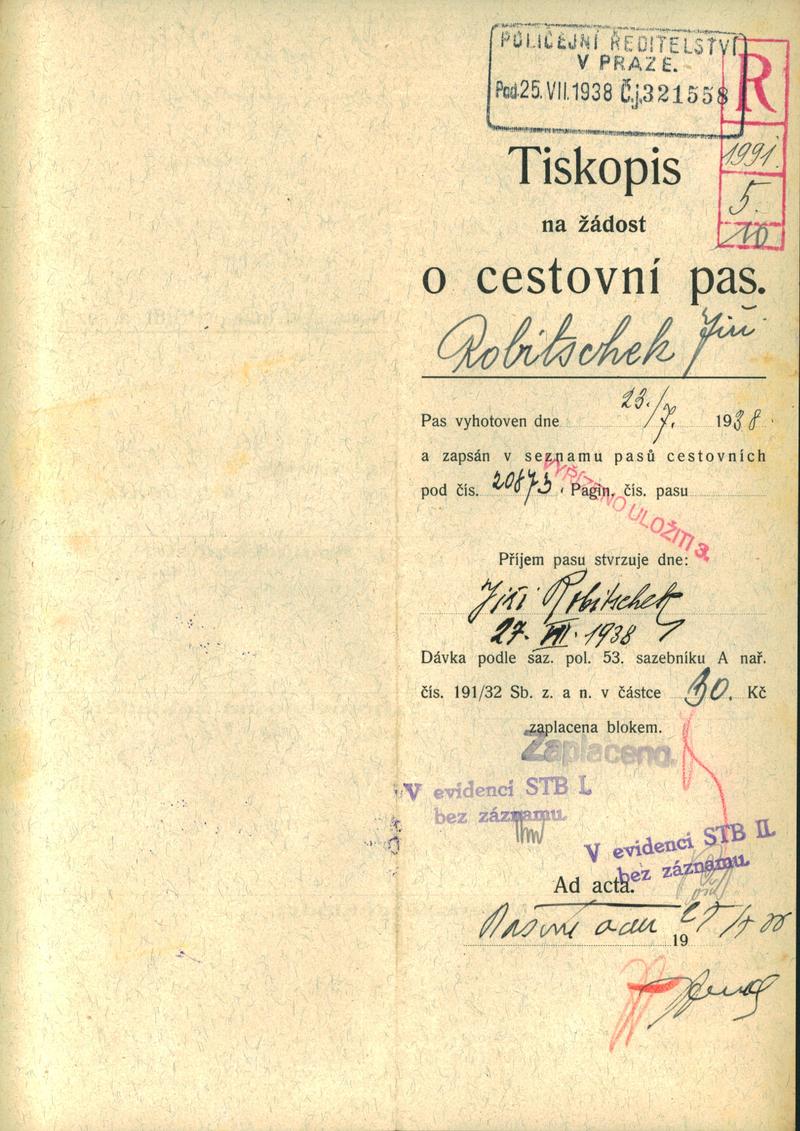 POLICEJNÍ ŘEDITELSTVÍ
V PRAZE.
Pod. 25. VII. 1938 Č.j. 321558
R
1991.
5.
10
Tiskopis
na žádost
o cestovní pas.
Robitschek Jiří
Pas vyhotoven dne 23./7. 1938.
a zapsán v seznamu pasů cestovních
pod čís. 20873. Pagin. čís. pasu
VYŘÍZENO ULOŽITI 3.
Příjem pasu stvrzuje dne:
Jiří Robitschek
27. VII. 1938
Dávka podle saz. pol. 53. sazebníku A nař.
čís. 191/32 Sb. z. a n. v částce 30. Kč
zaplacena blokem.
Zaplaceno.
V evidenci STB I.
bez záznamu.
V evidenci STB II.
bez záznamu.
Ad acta.
19